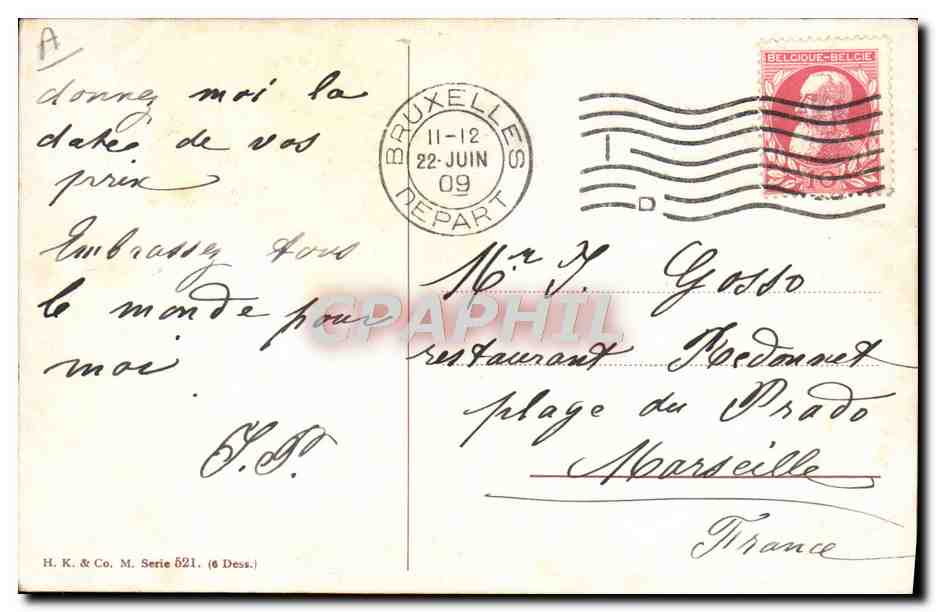 A
donnez moi la
date de vos
prix
Embrassez tous
le monde pour
moi
J. P.
H. K. & Co. M. Serie 521. (6 Dess.)
BRUXELLES
11-12
22-JUIN
09
DEPART
BELGIQUE-BELGIE
10
Mr J. Gosso
restaurant Redonnet
plage du Prado
Marseille
France
CPAPHIL